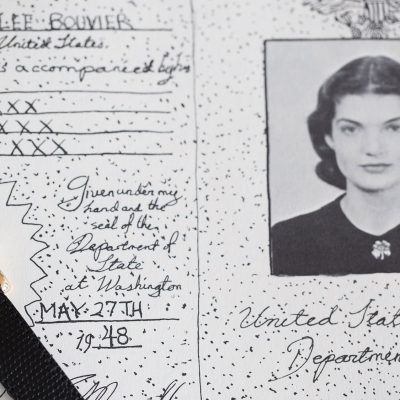 LEE BOUVIER
United States.
is accompanied by his
XX
XXX
XXXX
Given under my
hand and the
seal of the
Department of
State
at Washington
MAY 27TH
1948
United Sta
Departmen